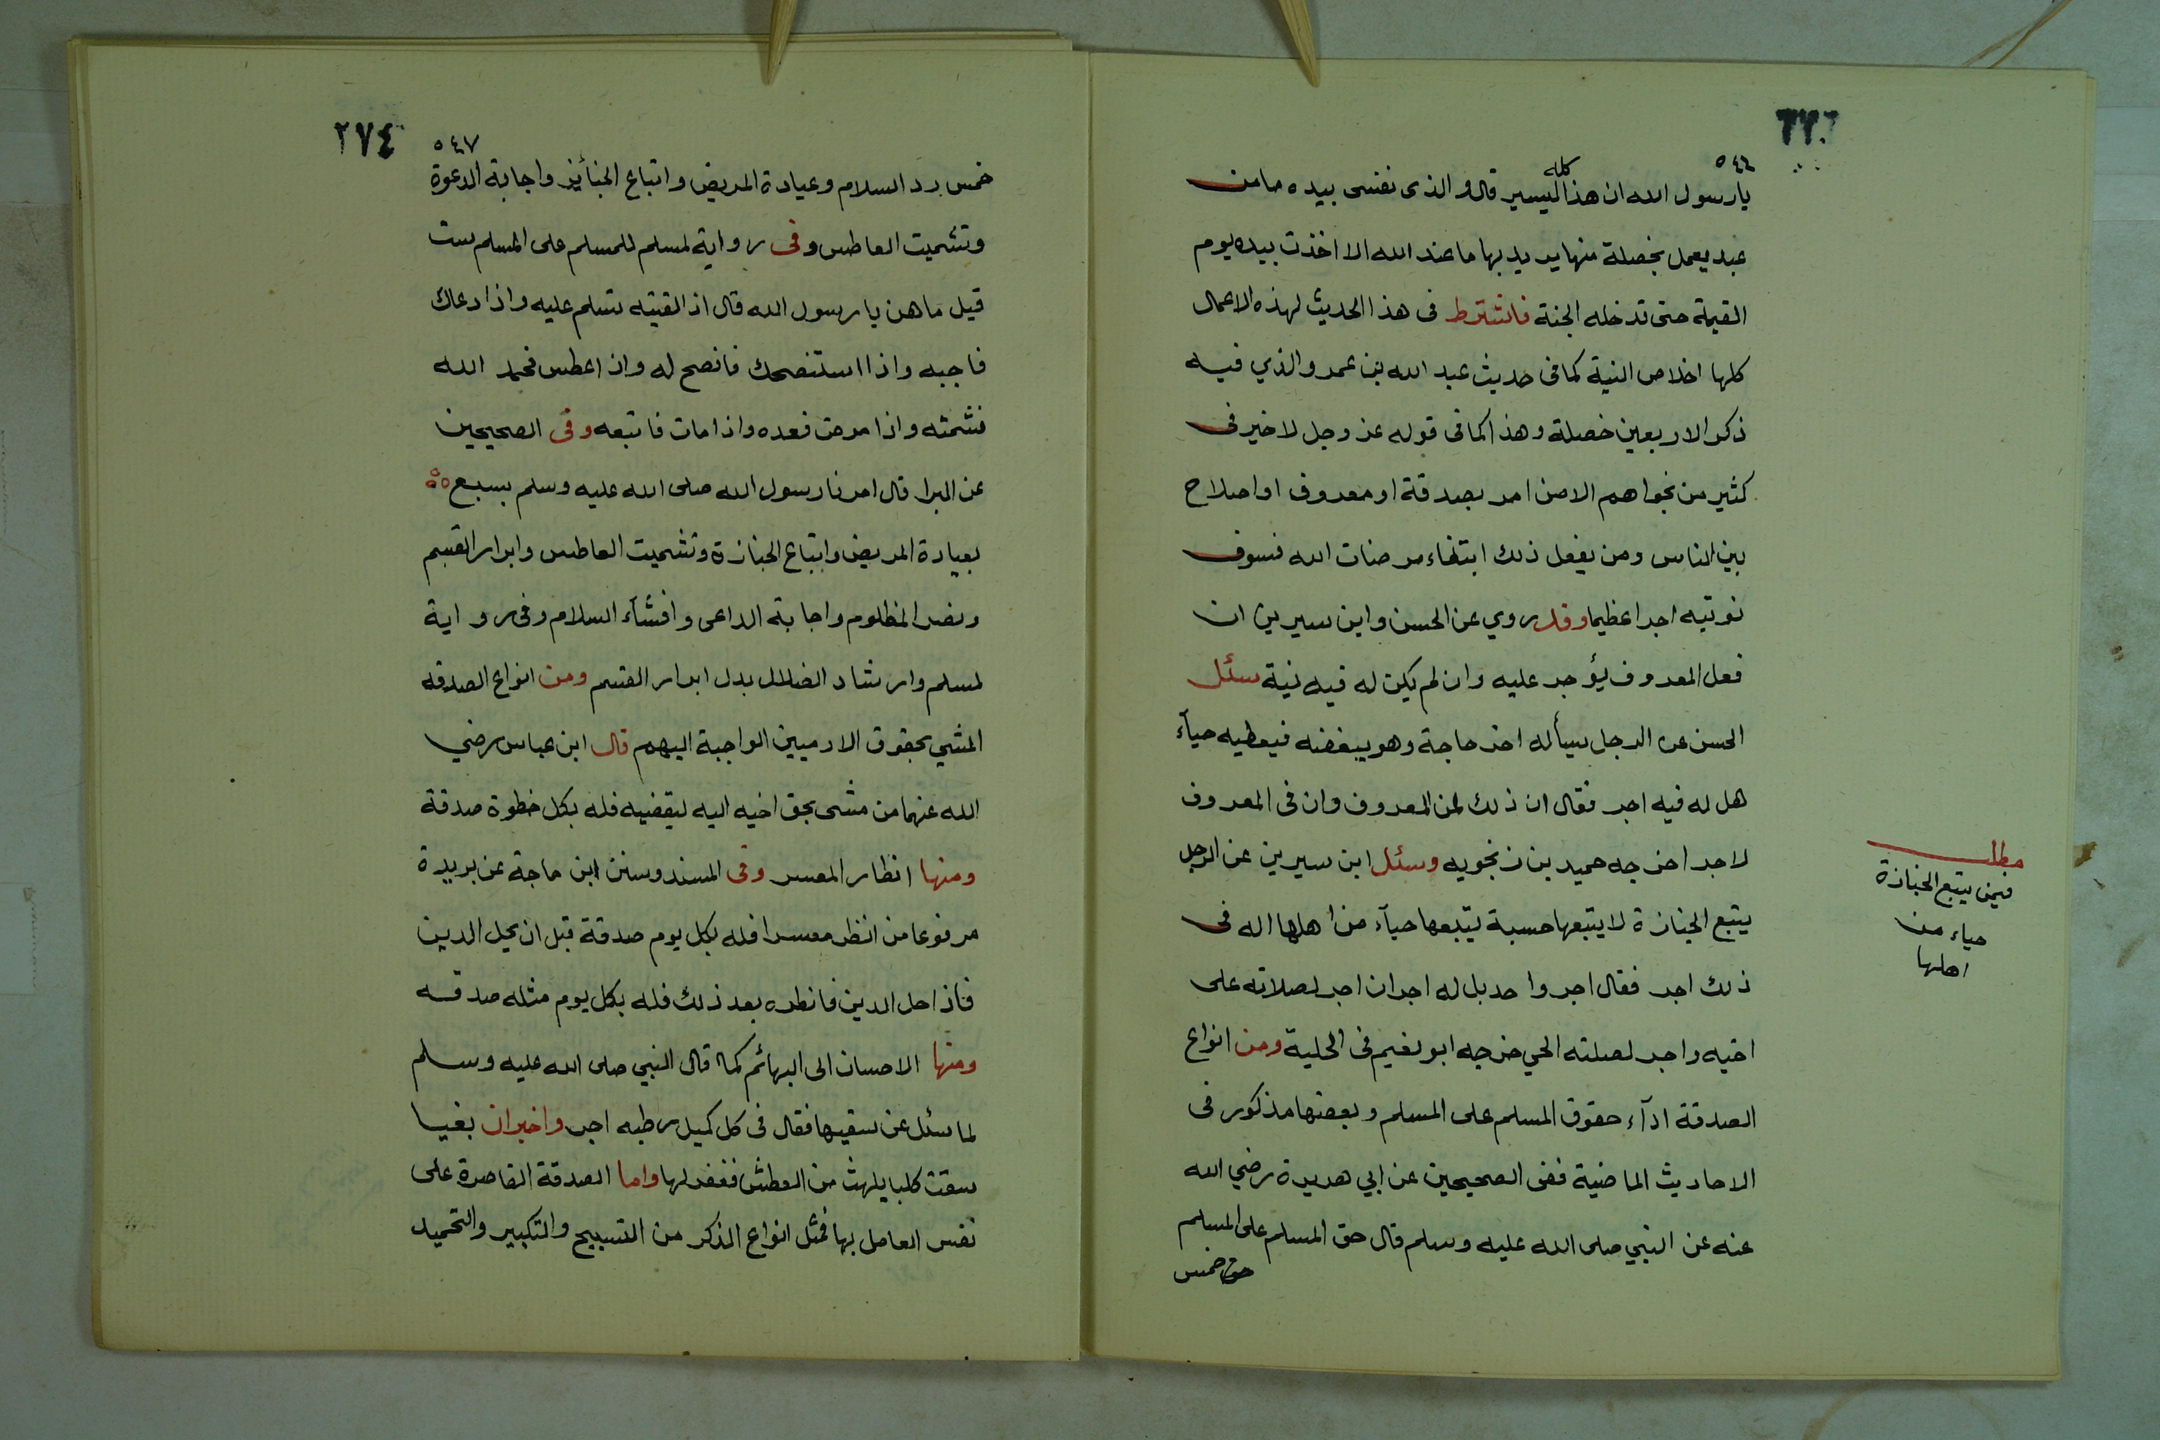 ٥٤٦
كله
يا رسول الله ان هذا ليسير قال والذى نفسى بيده ما من
عبد يعمل بخصلة منها يريد بها ما عند الله الا اخذت بيده يوم
القيمة حتى تدخله الجنة فاشترط فى هذا الحديث لهذه الاعمال
كلها اخلاص النية كما فى حديث عبد الله بن عمرو الذي فيه
ذكر الاربعين خصلة وهذا كما فى قوله عز وجل لا خير فى
كثير من نجواهم الا من امر بصدقة او معروف او اصلاح
بين الناس ومن يفعل ذلك ابتغاء مرضات الله فسوف
نوتيه اجرا عظيما وقد روي عن الحسن وابن سيرين ان
فعل المعروف يؤجر عليه وان لم يكن له فيه نية سئل
الحسن عن الرجل يسأله اخر حاجة وهو يبغضه فيعطيه حيآء
هل له فيه اجر فقال ان ذلك لمن المعروف وان فى المعروف
لاجرا خرجه حميد بن زنجويه وسئل ابن سيرين عن الرجل
يتبع الجنازة لا يتبعها حسبة يتبعها حيآء من اهلها اله فى
ذلك اجر فقال اجر واحد بل له اجران اجر لصلاته على
اخيه واجر لصلته الحي خرجه ابو نعيم فى الحلية ومن انواع
الصدقة ادآء حقوق المسلم على المسلم وبعضها مذكور فى
الاحاديث الماضية ففى الصحيحين عن ابي هريرة رضي الله
عنه عن النبي صلى الله عليه وسلم قال حق المسلم على المسلم
خمس
مطلب
فيمن يتبع الجنازة
حياء من
اهلها
٢٧٤
٥٤٧
خمس رد السلام وعيادة المريض واتباع الجنائز واجابة الدعوة
وتشميت العاطس وفى رواية لمسلم للمسلم على المسلم ست
قيل ما هن يا رسول الله قال اذا لقيته تسلم عليه واذا دعاك
فاجبه واذا استنصحك فانصح له واذا عطس فحمد الله
فشمته واذا مرض فعده واذا مات فاتبعه وفى الصحيحين
عن البرا قال امرنا رسول الله صلى الله عليه وسلم بسبع
بعيادة المريض واتباع الجنازة وتشميت العاطس وابرار القسم
ونصر المظلوم واجابة الداعى وافشآء السلام وفى رواية
لمسلم وارشاد الضلال بدل ابرار القسم ومن انواع الصدقه
المشي بحقوق الادميين الواجبة اليهم قال ابن عباس رضي
الله عنهما من مشى بحق اخيه اليه ليقضيه فله بكل خطوة صدقة
ومنها انظار المعسر وفى المسند وسنن ابن ماجة عن بريدة
مرفوعا من انظر معسرا فله بكل يوم صدقة قبل ان يحل الدين
فاذا حل الدين فانظره بعد ذلك فله بكل يوم مثله صدقه
ومنها الاحسان الى البهائم كما قال النبي صلى الله عليه وسلم
لما سئل عن سقيها فقال فى كل كبد رطبه اجر واخبر ان بغيا
سقت كلبا يلهث من العطش فغفر لها واما الصدقة القاصرة على
نفس العامل بها فمثل انواع الذكر من التسبيح والتكبير والتحميد